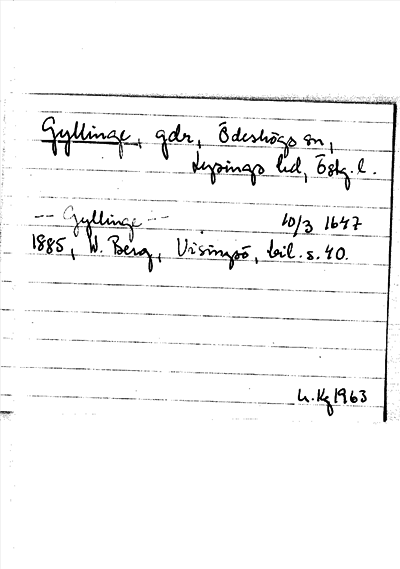 Gyllinge, gdr, Ödeshögs sn,
Lysings hd, Östg. l.
-- Gyllinge -- 10/3 1647
1885, W. Berg, Visingsö, bil. s. 40.
Kg 1963